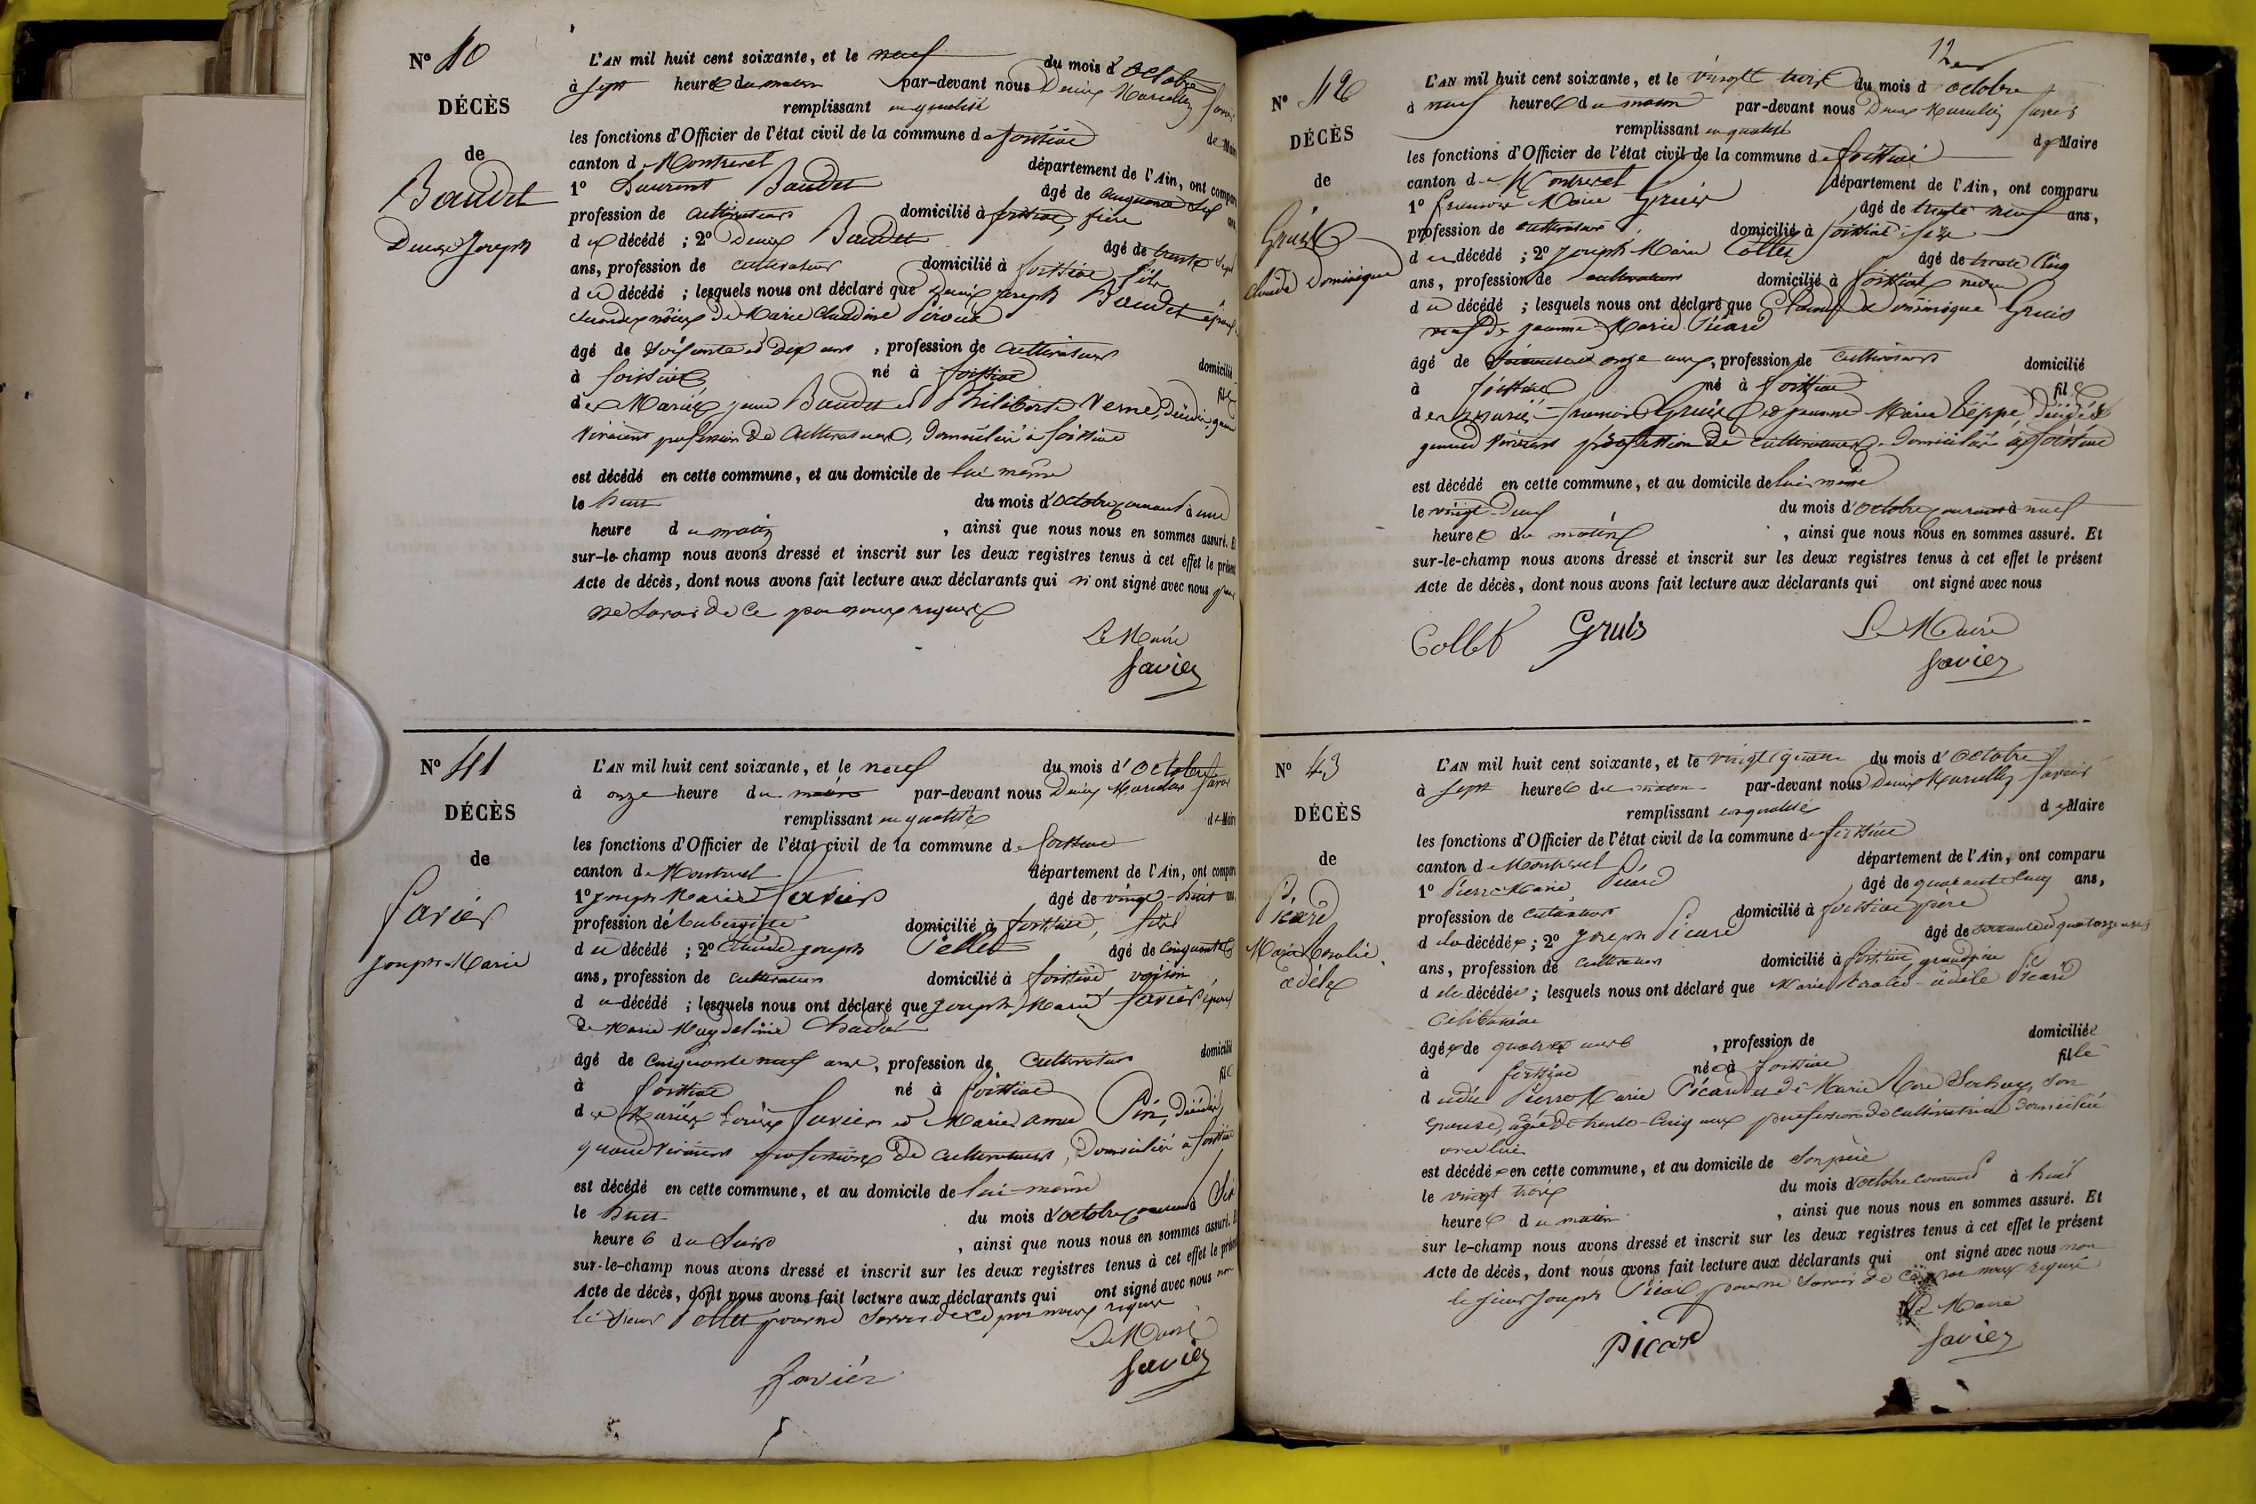 N° 40
DÉCÈS
de
Baudet
Denis Joseph
L'AN mil huit cent soixante, et le neuf du mois d'Octobre
à sept heures du matin par-devant nous Denis Marcellin Favier
remplissant en qualité de Maire
les fonctions d'Officier de l'état civil de la commune de foissiat
canton de Montrevel département de l'Ain, ont comparu
1° Laurent Baudet âgé de cinquante sept ans
profession de cultivateur domicilié à foissiat, frère
du décédé ; 2° Denis Baudet âgé de trente sept
ans, profession de cultivateur domicilié à foissiat fils
du décédé ; lesquels nous ont déclaré que Denis Joseph Baudet époux
de Marie Claudine
âgé de soixante et dix ans, profession de cultivateur domicilié
à foissiat né à foissiat fils
des Mariés Baudet et Philiberte Verne, décédés, quand
vivaient profession de cultivateurs, domiciliés à foissiat
est décédé en cette commune, et au domicile de lui même
le huit du mois d'octobre courant à une
heure du matin, ainsi que nous nous en sommes assuré. Et
sur-le-champ nous avons dressé et inscrit sur les deux registres tenus à cet effet le présent
Acte de décès, dont nous avons fait lecture aux déclarants qui n'ont signé avec nous pour
ne savoir de ce par nous requis
Le Maire
Favier
N° 41
DÉCÈS
de
Favier
Joseph-Marie
L'AN mil huit cent soixante, et le neuf du mois d'Octobre
à onze heure du matin par-devant nous Denis Marcellin Favier
remplissant en qualité de Maire
les fonctions d'Officier de l'état civil de la commune de foissiat
canton de Montrevel département de l'Ain, ont comparu
1° Joseph Marie Favier âgé de vingt-huit ans
profession d'aubergiste domicilié à foissiat, fils
du décédé ; 2° Claude Joseph Pellet âgé de cinquante
ans, profession de cultivateur domicilié à foissiat voisin
du décédé ; lesquels nous ont déclaré que Joseph Marie Favier époux
de Marie Magdeleine
âgé de cinquante neuf ans, profession de cultivateur domicilié
à foissiat né à foissiat fils
des Mariés Favier et Marie Anne Pin, décédés
quand vivaient profession de cultivateurs, domiciliés à foissiat
est décédé en cette commune, et au domicile de lui-même
le huit du mois d'octobre courant à six
heures du soir, ainsi que nous nous en sommes assuré. Et
sur-le-champ nous avons dressé et inscrit sur les deux registres tenus à cet effet le présent
Acte de décès, dont nous avons fait lecture aux déclarants qui ont signé avec nous non
le sieur Pellet pour ne savoir de ce par nous requis
Le Maire
Favier
Favier
N° 42
DÉCÈS
de
Gruis
Claude Dominique
L'AN mil huit cent soixante, et le vingt trois du mois d'octobre
à neuf heures du matin par-devant nous Denis Marcellin Favier
remplissant en qualité de Maire
les fonctions d'Officier de l'état civil de la commune de foissiat
canton de Montrevel département de l'Ain, ont comparu
1° François Marie Gruis âgé de trente neuf ans,
profession de cultivateur domicilié à foissiat fils
du décédé ; 2° Joseph Marie Collet âgé de trente cinq
ans, profession de cultivateur domicilié à foissiat neveu
du décédé ; lesquels nous ont déclaré que Claude Dominique Gruis
veuf de Jeanne Marie Picard
âgé de soixante et onze ans, profession de cultivateur domicilié
à foissiat né à foissiat fils
des mariés françois Gruis et Jeanne Marie Teppe, décédés
quand vivaient profession de cultivateurs, domiciliés à foissiat
est décédé en cette commune, et au domicile de lui même
le vingt-deux du mois d'octobre courant à neuf
heures du matin, ainsi que nous nous en sommes assuré. Et
sur-le-champ nous avons dressé et inscrit sur les deux registres tenus à cet effet le présent
Acte de décès, dont nous avons fait lecture aux déclarants qui ont signé avec nous
Collet Gruis
Le Maire
Favier
N° 43
DÉCÈS
de
Picard
Marie Rosalie
adèle
L'AN mil huit cent soixante, et le vingt quatre du mois d'Octobre
à sept heures du matin par-devant nous Denis Marcellin Favier
remplissant en qualité de Maire
les fonctions d'Officier de l'état civil de la commune de foissiat
canton de Montrevel département de l'Ain, ont comparu
1° Pierre Marie Picard âgé de quarante cinq ans,
profession de cultivateur domicilié à foissiat père
de la décédée ; 2° Joseph Picard âgé de soixante et quatorze ans
ans, profession de cultivateur domicilié à foissiat, grand père
de la décédée ; lesquels nous ont déclaré que Marie Rosalie adèle Picard
célibataire
âgée de quatre ans, profession de domiciliée
à foissiat née à foissiat fille
dudit Pierre Marie Picard et de Marie Rose son
épouse, âgée de trente-cinq ans profession de cultivatrice domiciliée
avec lui
est décédée en cette commune, et au domicile de son père
le vingt trois du mois d'octobre courant à huit
heures du matin, ainsi que nous nous en sommes assuré. Et
sur le-champ nous avons dressé et inscrit sur les deux registres tenus à cet effet le présent
Acte de décès, dont nous avons fait lecture aux déclarants qui ont signé avec nous non
le sieur Joseph Picard pour ne savoir de ce par nous requis
Le Maire
Picard
Favier